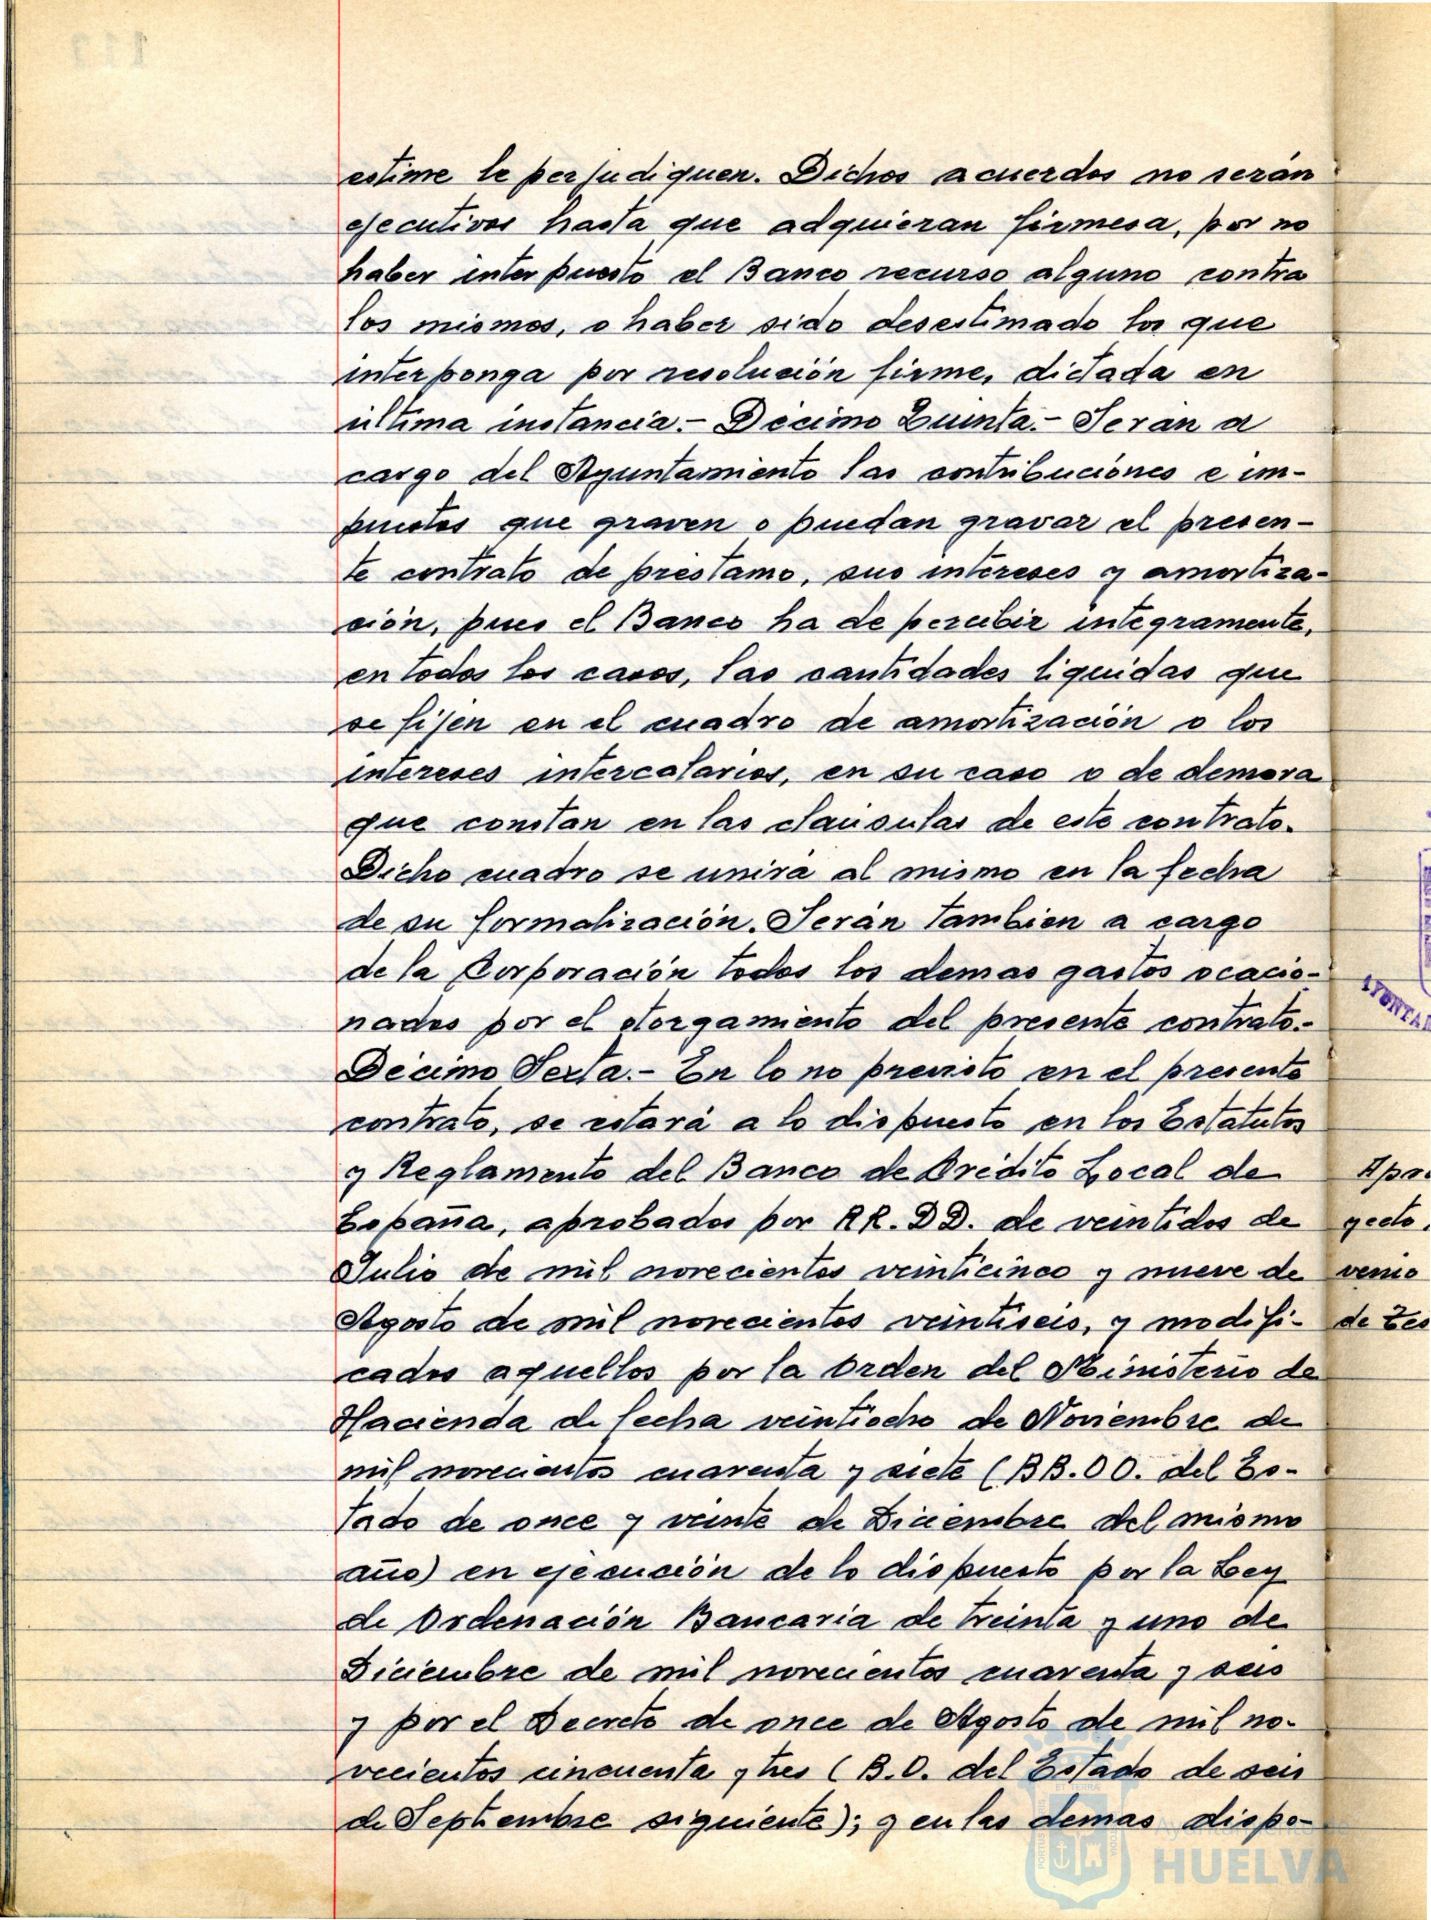 estime le perjudiquen. Dichos acuerdos no serán
ejecutivos hasta que adquieran firmesa, por no
haber interpuesto el Banco recurso alguno contra
los mismos, o haber sido desestimado los que
interponga por resolución firme, dictada en
última instancia.- Décimo Quinta.- Serán a
cargo del Ayuntamiento las contribuciónes e im-
puestos que graven o puedan gravar el presen-
te contrato de préstamo, sus intereses y amortiza-
ción, pues el Banco ha de percibir integramente,
en todos los casos, las cantidades liquidas que
se fijen en el cuadro de amortización o los
intereses intercalarios, en su caso o de demora
que constan en las clausulas de este contrato.
Dicho cuadro se unirá al mismo en la fecha
de su formalización. Serán tambien a cargo
de la Corporación todos los demas gastos ocacio-
nados por el otorgamiento del presente contrato.-
Décimo Sexta.- En lo no previsto en el presente
contrato, se estará a lo dispuesto en los Estatutos
y Reglamento del Banco de Crédito Local de
España, aprobados por RR.DD. de veintidos de
Julio de mil novecientos veinticinco y nueve de
Agosto de mil novecientos veintiseis, y modifi-
cados aquellos por la Orden del Ministerio de
Hacienda de fecha veintiocho de Noviembre de
mil novecientos cuarenta y siete (BB.OO. del Es-
tado de once y veinte de Diciembre del mismo
año) en ejecución de lo dispuesto por la Ley
de Ordenación Bancaria de treinta y uno de
Diciembre de mil novecientos cuarenta y seis
y por el Decreto de once de Agosto de mil no-
vecientos cincuenta y tres (B.O. del Estado de seis
de Septiembre siguiente); y en las demas dispo-
Ayuntamiento de
HUELVA